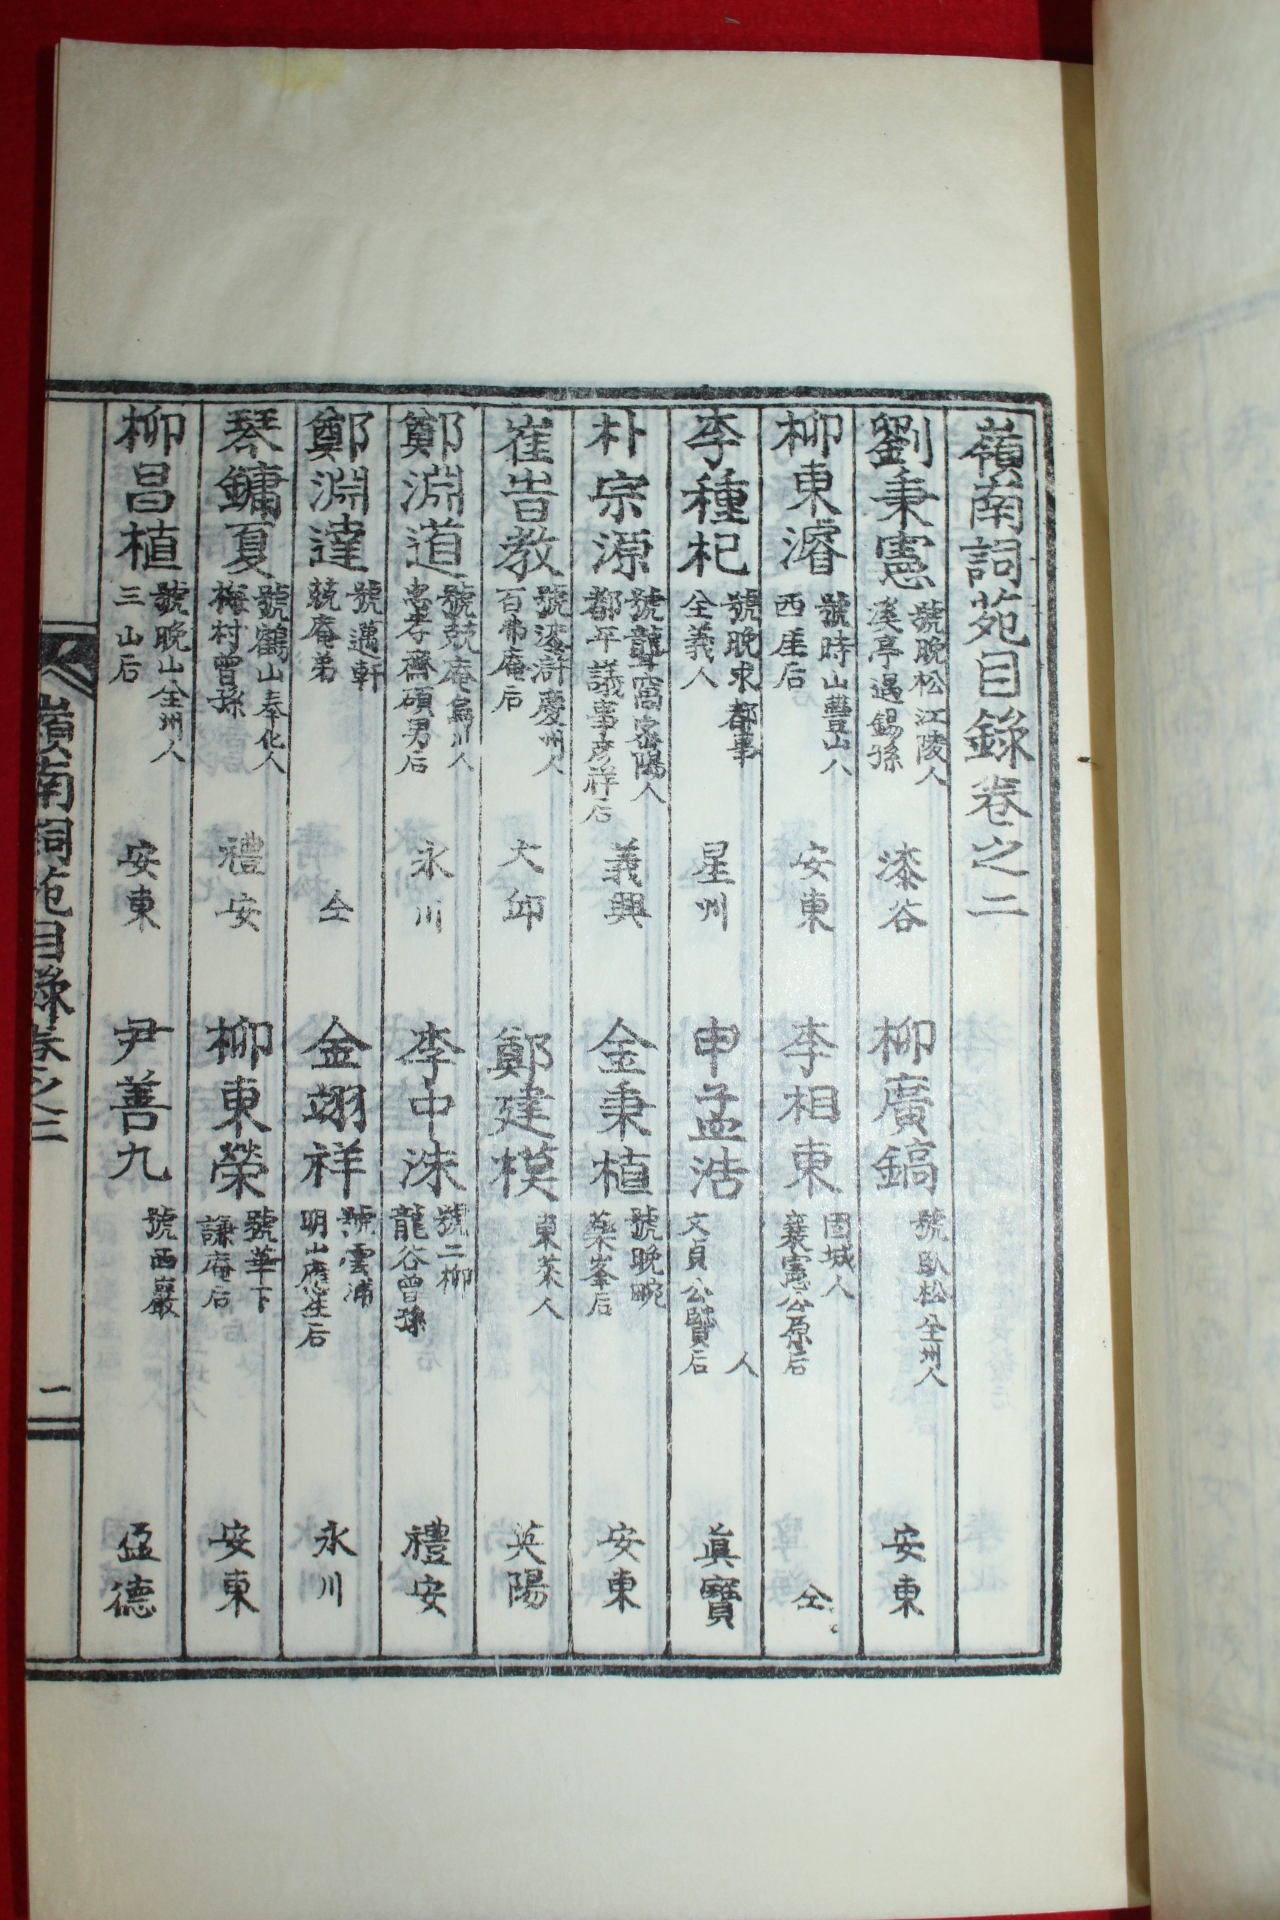 嶺南詞苑目錄卷之二
劉秉憲 號晩松江陵人 溪亭遇錫孫 漆谷 柳廣鎬 號臥松全州人 安東
柳東濬 號時山豐山人 西厓后 安東 李相東 固城人 襄憲公原后 仝
李種杞 號晩求都事 全義人 星州 申孟浩 人 文貞公賢后 眞寶
朴宗源 號龍窩密陽人 都平議事彦祥后 義興 金秉植 號晩畹 藥峯后 安東
崔敎 號漆滸慶州人 百弗庵后 大邱 鄭建模 東萊人 英陽
鄭淵道 號兢庵烏川人 忠孝齋碩男后 永川 李中洙 號二柳 龍谷曾孫 禮安
鄭淵達 號邁軒 兢庵弟 仝 金翊祥 號雲浦 明山應生后 永川
琴鏞夏 號鶴山奉化人 梅村曾孫 禮安 柳東榮 號華下 謙庵后 安東
柳昌植 號晩山全州人 三山后 安東 尹善九 號西巖 盈德
嶺南詞苑目錄卷之二 一